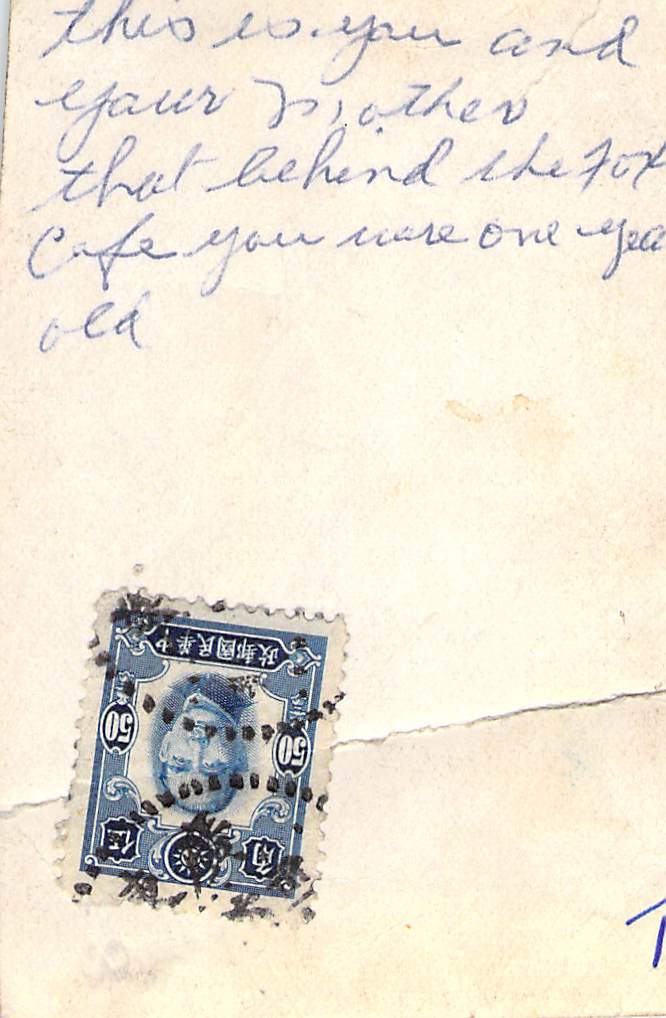 this is you and
your mother
that behind the Fox
Cafe you were one yea
old
中華民國郵政
50 50
伍 角